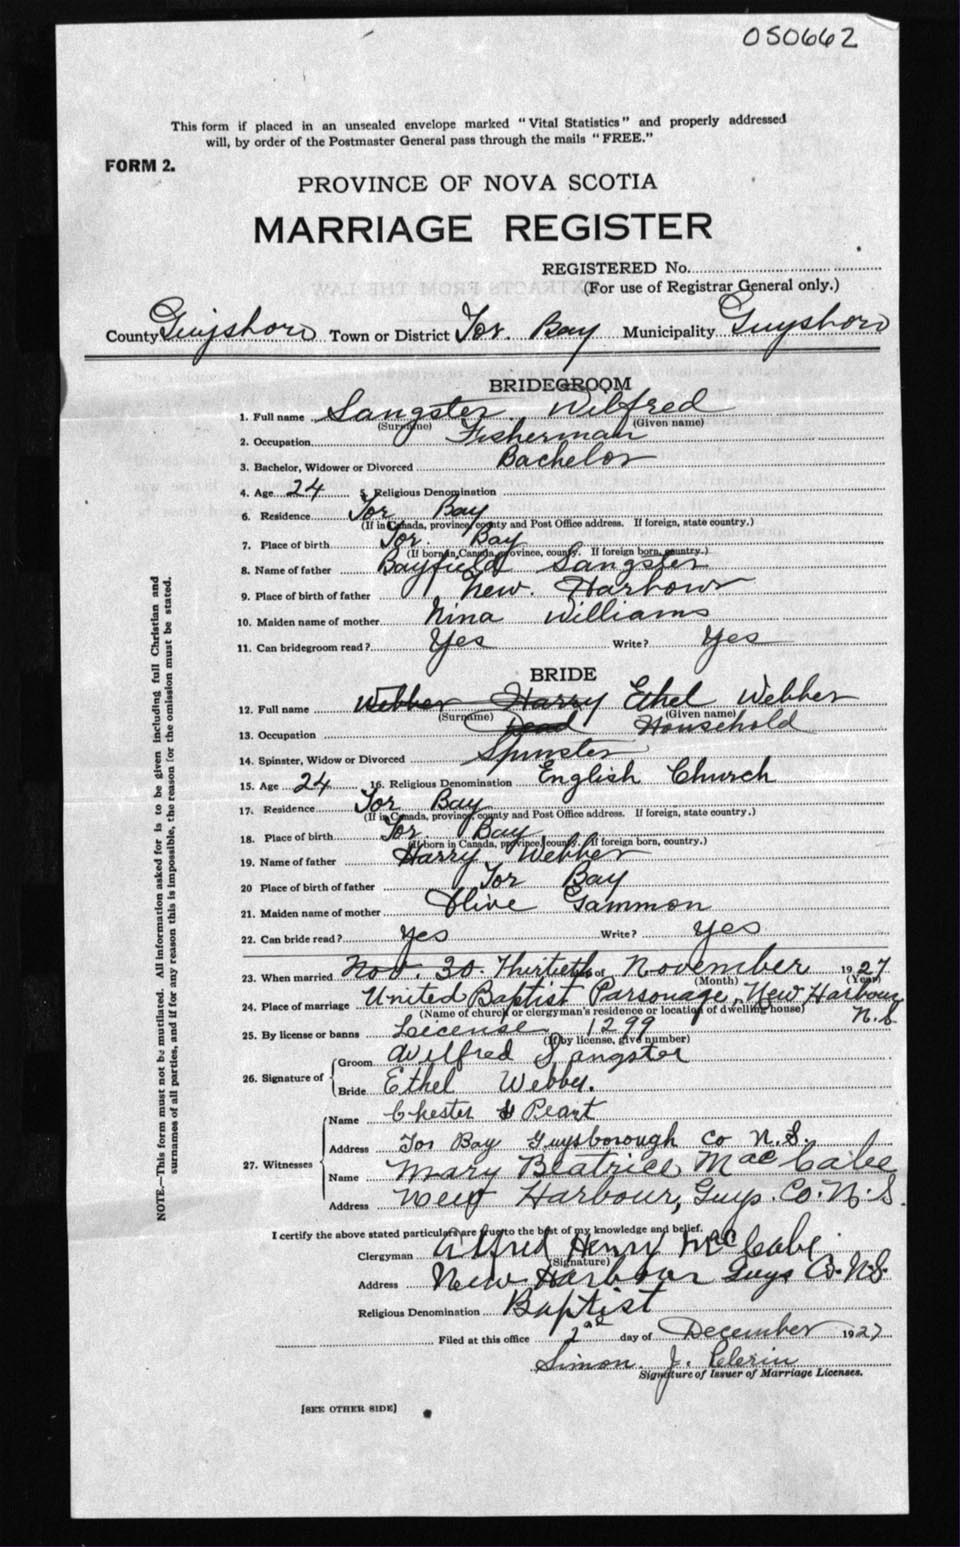 050662
This form if placed in an unsealed envelope marked "Vital Statistics" and properly addressed
will, by order of the Postmaster General pass through the mails "FREE."
FORM 2.
PROVINCE OF NOVA SCOTIA
MARRIAGE REGISTER
REGISTERED No.
(For use of Registrar General only.)
County Guysboro Town or District Tor. Bay Municipality Guysboro
BRIDEGROOM
1. Full name Sangster Wilfred
(Surname) (Given name)
2. Occupation Fisherman
3. Bachelor, Widower or Divorced Bachelor
4. Age 24 5. Religious Denomination
6. Residence Tor Bay
(If in Canada, province, county and Post Office address. If foreign, state country.)
7. Place of birth Tor. Bay
(If born in Canada, province, county. If foreign born, country.)
8. Name of father Bayfield Sangster
9. Place of birth of father New. Harbour
10. Maiden name of mother Nina Williams
11. Can bridegroom read? Yes Write? Yes
BRIDE
12. Full name Webber Harry Ethel Webber
(Surname) (Given name)
13. Occupation Dead Household
14. Spinster, Widow or Divorced Spinster
15. Age 24 16. Religious Denomination English Church
17. Residence Tor Bay
(If in Canada, province, county and Post Office address. If foreign, state country.)
18. Place of birth Tor Bay
(If born in Canada, province, county. If foreign born, country.)
19. Name of father Harry Webber
20 Place of birth of father Tor Bay
21. Maiden name of mother Olive Gammon
22. Can bride read? Yes Write? Yes
23. When married Nov. 30. Thirtieth of November 1927
(Month) (Year)
24. Place of marriage United Baptist Parsonage, New Harbour
(Name of church or clergyman's residence or location of dwelling house) N.S.
25. By license or banns License 1299
(If by license, give number)
26. Signature of
Groom Wilfred Sangster
Bride Ethel Webber.
27. Witnesses
Name Chester Peart
Address Tor Bay Guysborough Co N.S.
Name Mary Beatrice MacCabe
Address New Harbour, Guys. Co. N.S.
I certify the above stated particulars are true to the best of my knowledge and belief.
Clergyman Alfred Henry MacCabe
(Signature)
Address New Harbour Guys Co. N.S.
Religious Denomination Baptist
Filed at this office 2nd day of December 1927
Simon. J. Pelerin
Signature of Issuer of Marriage Licenses.
[SEE OTHER SIDE]
NOTE.—This form must not be mutilated. All information asked for is to be given including full Christian and
surnames of all parties, and if for any reason this is impossible, the reason for the omission must be stated.